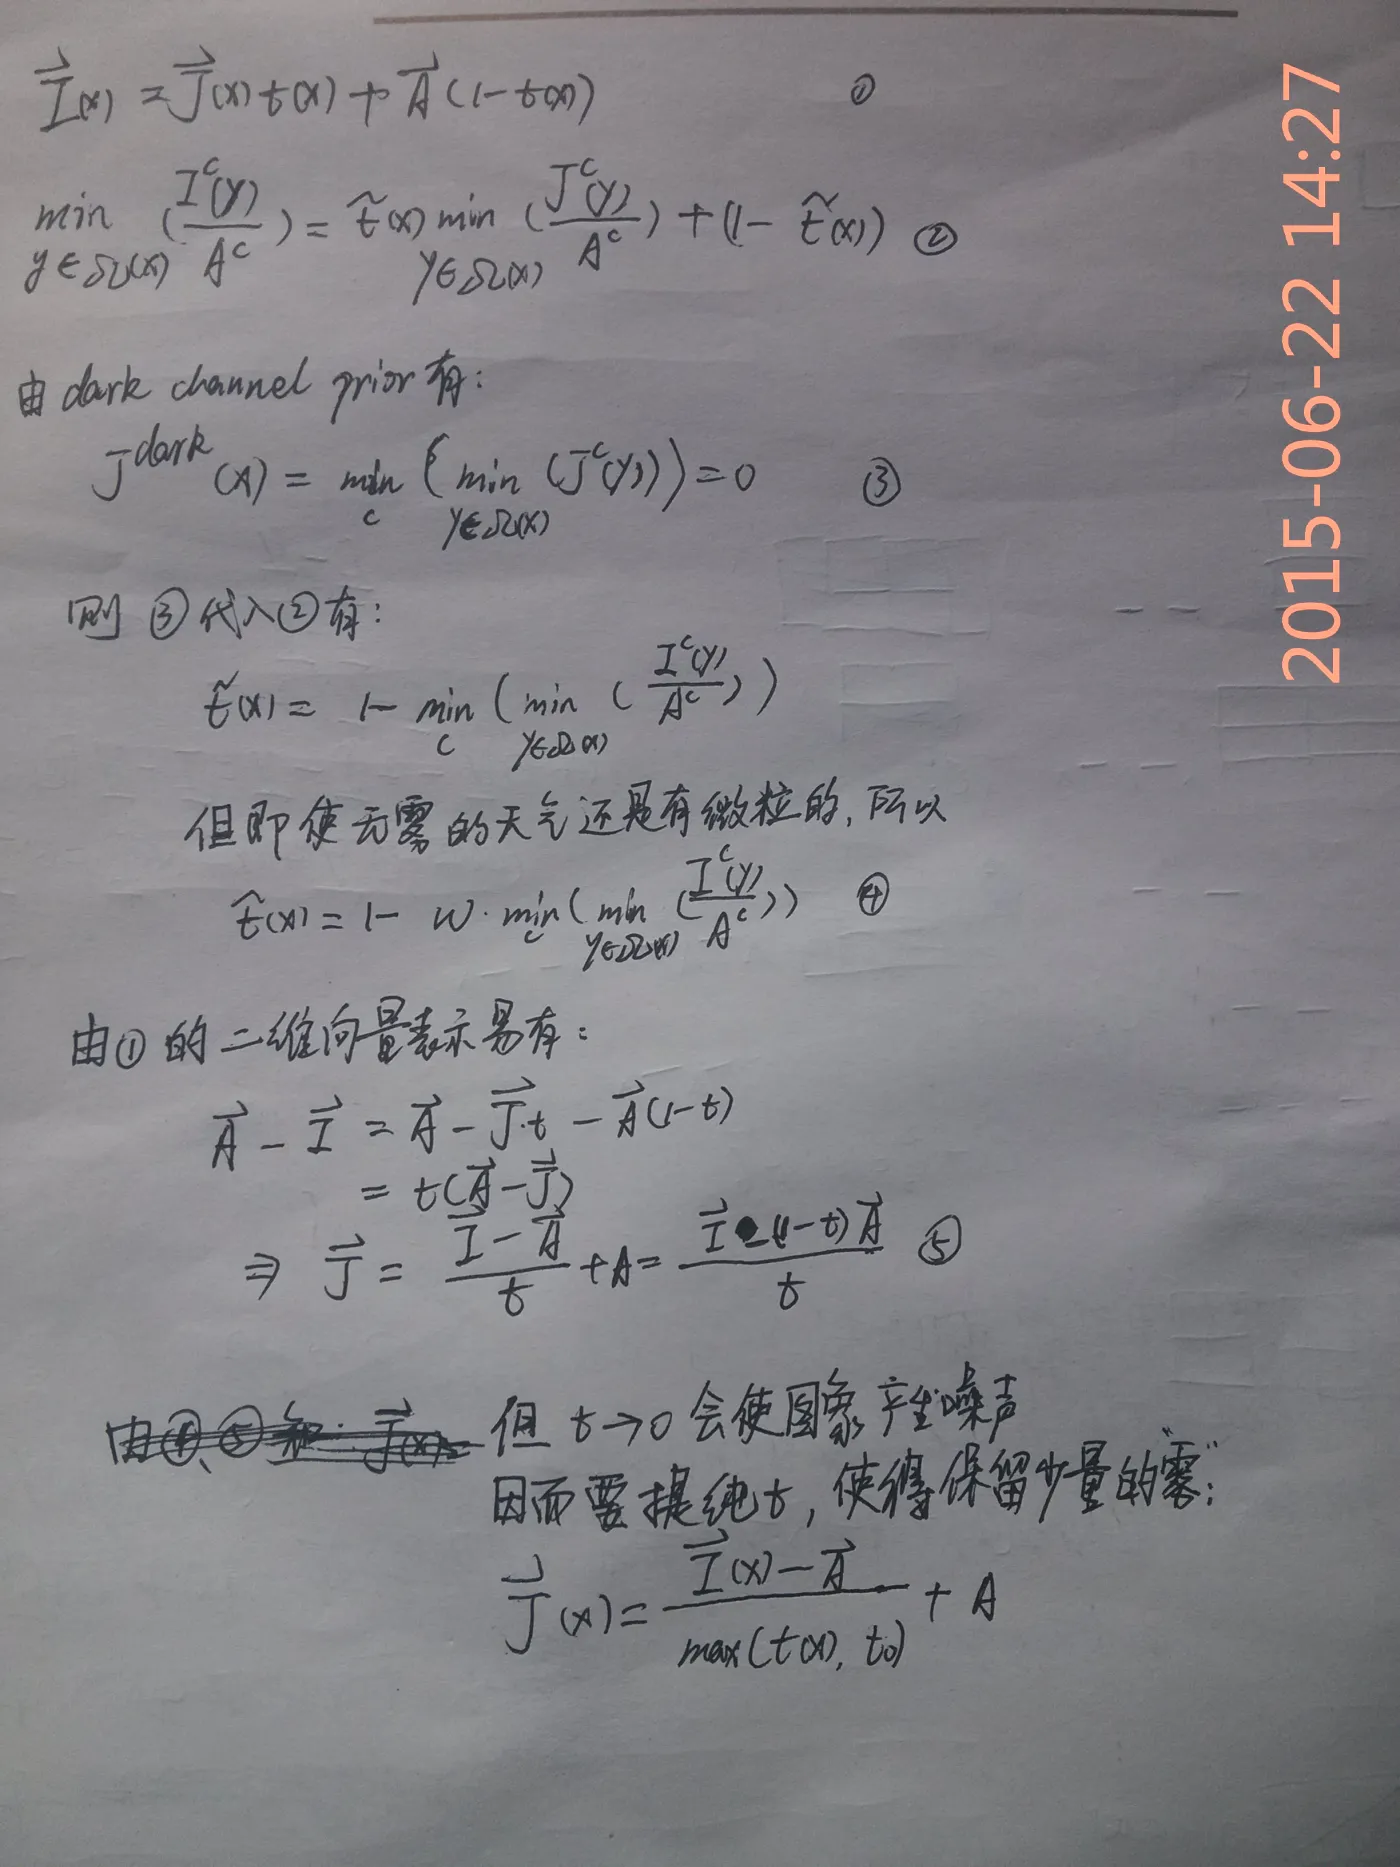 I⃗(x) = J⃗(x) t(x) + A⃗(1-t(x)) ①
min_{y∈Ω(x)} (I^c(y)/A^c) = t̃(x) min_{y∈Ω(x)} (J^c(y)/A^c) + (1- t̃(x)) ②
由 dark channel prior 有:
J^{dark}(x) = min_c (min_{y∈Ω(x)} (J^c(y))) = 0 ③
则 ③代入②有:
t̃(x) = 1- min_c (min_{y∈Ω(x)} (I^c(y)/A^c))
但即使无雾的天气还是有微粒的, 所以
t̃(x) = 1- w·min_c(min_{y∈Ω(x)} (I^c(y)/A^c)) ④
由①的二维向量表示易有:
A⃗ - I⃗ = A⃗ - J⃗·t - A⃗(1-t)
= t(A⃗-J⃗)
⇒ J⃗ = (I⃗-A⃗)/t + A = (I⃗-(1-t)A⃗)/t ⑤
由④、⑤知: J⃗(x)= 但 t→0 会使图象产生噪声
因而要提纯t, 使得保留少量的"雾":
J⃗(x) = (I⃗(x)-A⃗)/max(t(x), t₀) + A
2015-06-22 14:27